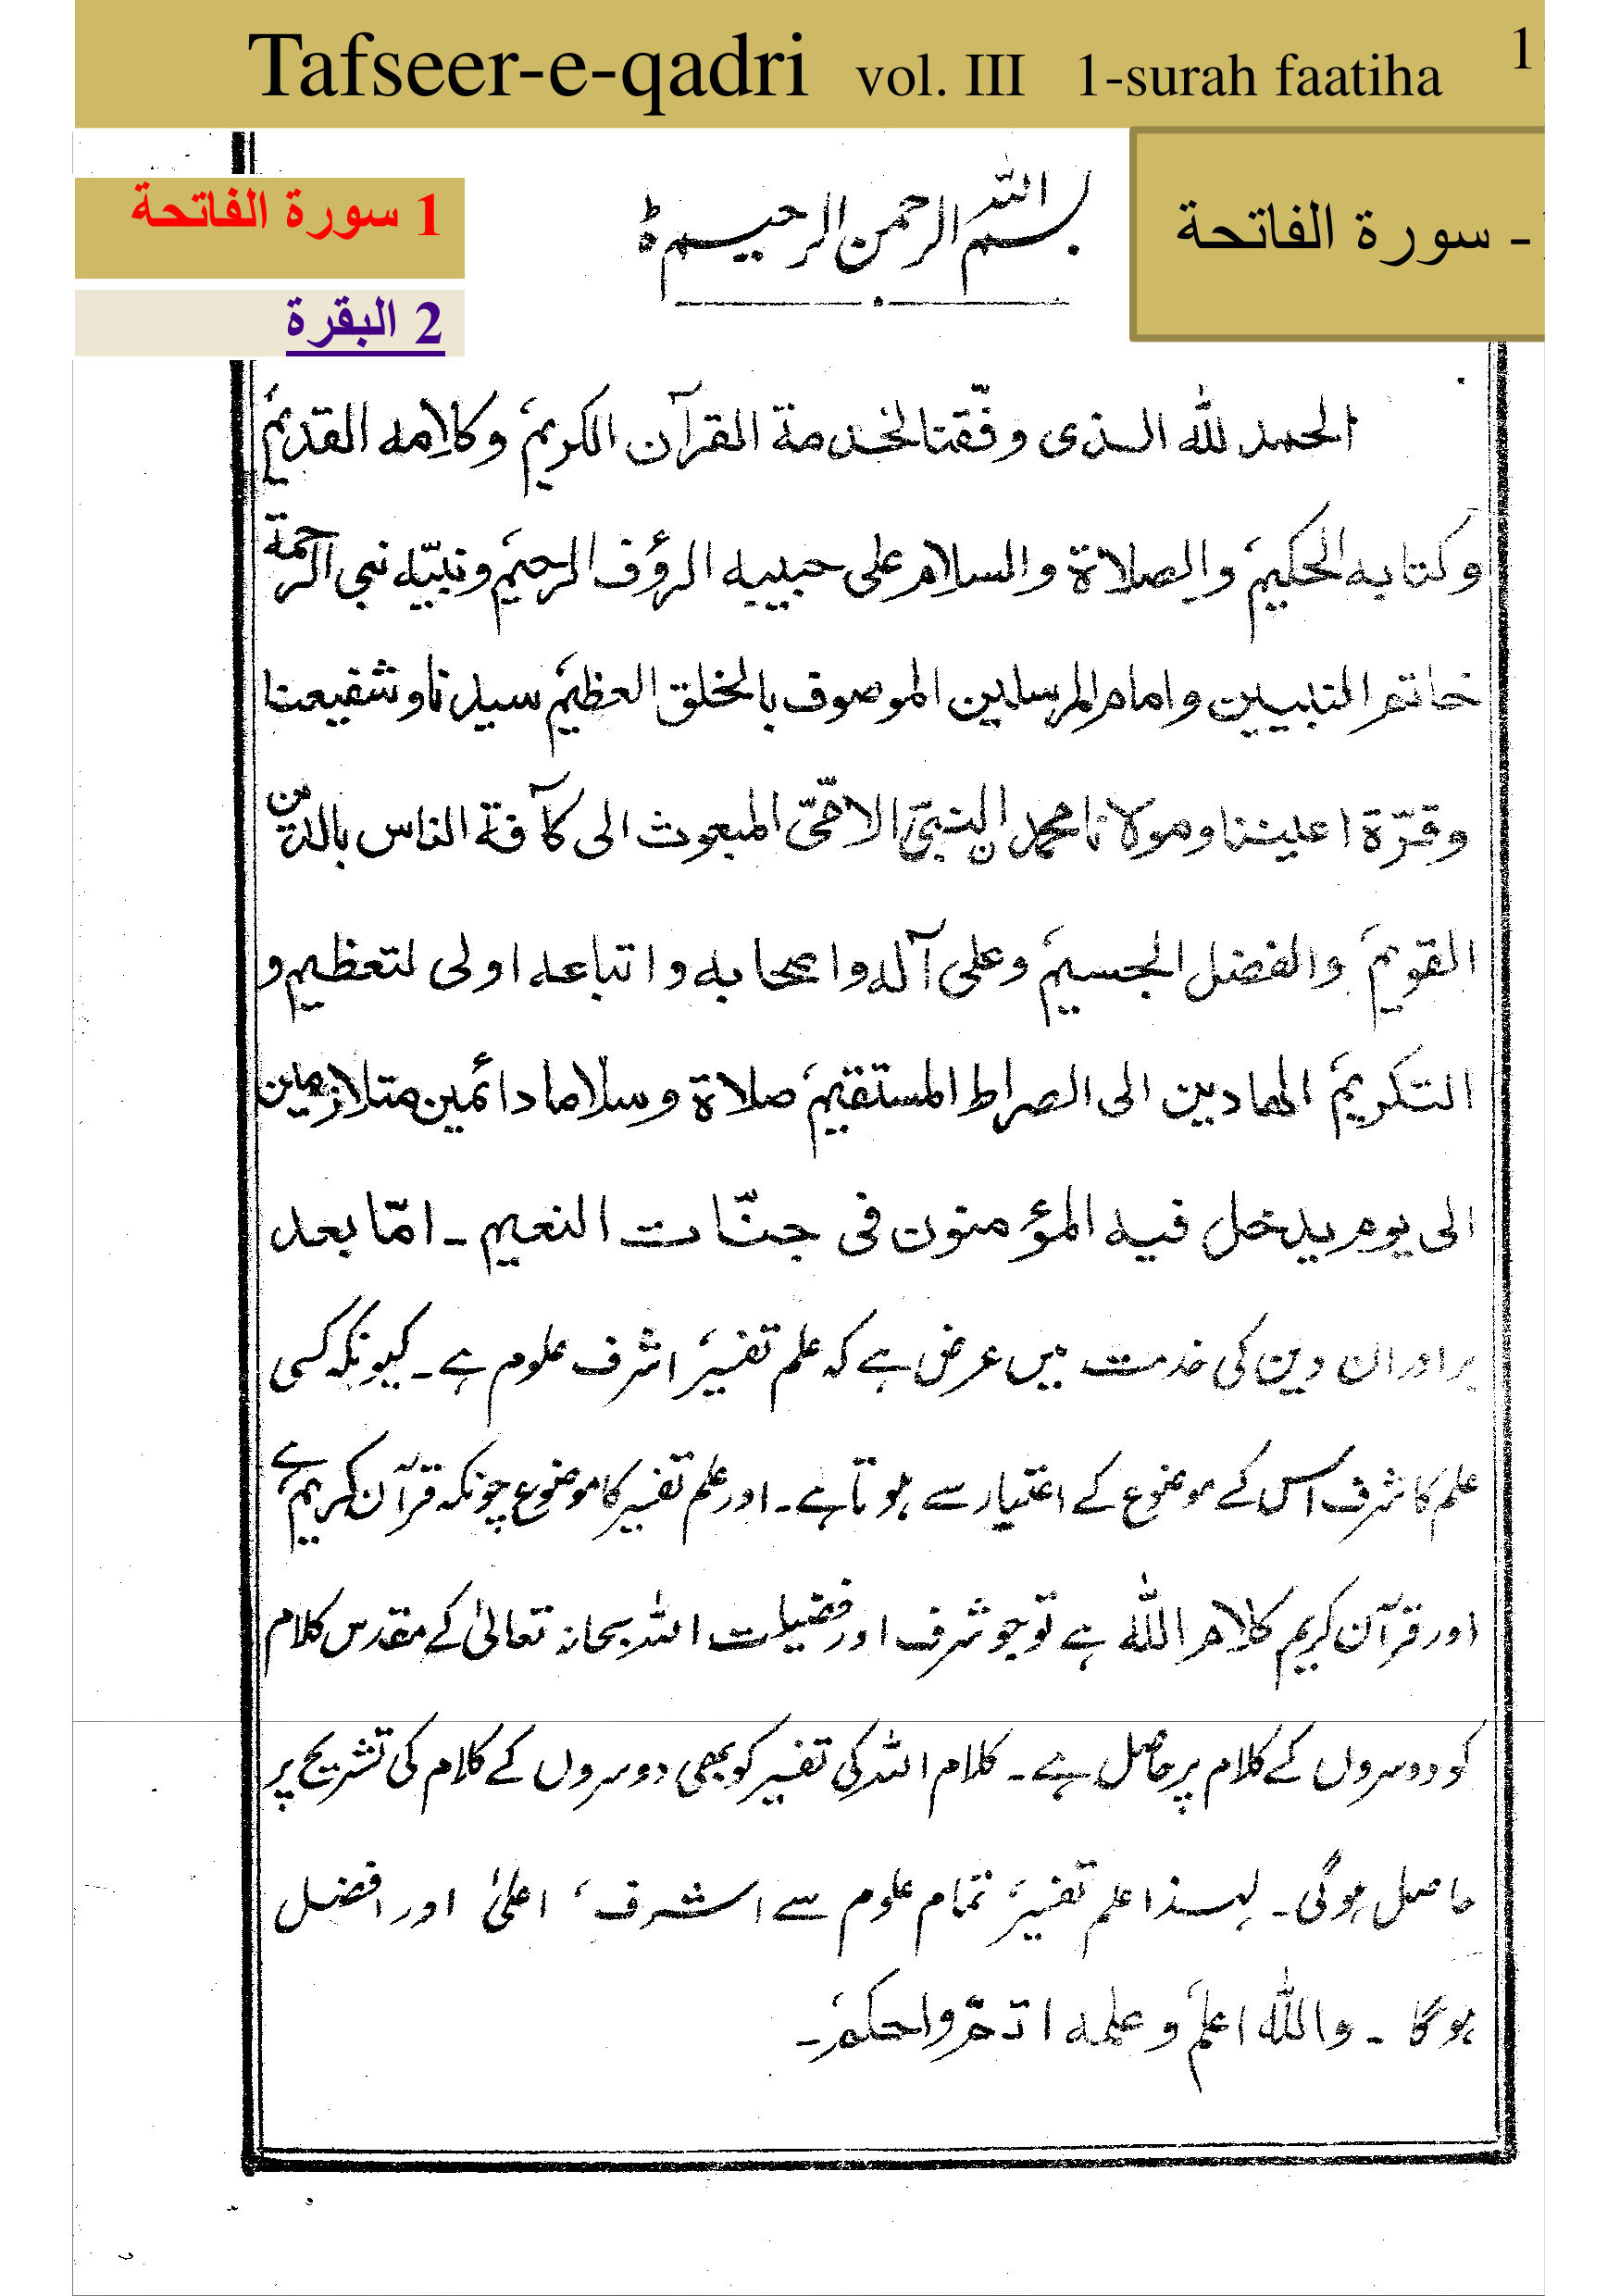 Tafseer-e-qadri vol. III 1-surah faatiha 1
- سورة الفاتحة
1 سورة الفاتحة
2 البقرة
بسم الله الرحمن الرحيم ط
الحمد لله الذی وفّقنا لخدمة القرآن الکریم، وکلامه القدیم،
وکتابه الحکیم، والصلاة والسلام علی حبیبه الرؤف الرحیم، ونبیّه نبی الرحمة
خاتم النبیین وامام المرسلین الموصوف بالخلق العظیم، سیدنا وشفیعنا
وقرّة اعیننا ومولانا محمد النبیّ الامّیّ المبعوث الی کآفة الناس بالدین
القویم، والفضل الجسیم، وعلی آله واصحابه واتباعه اولی لتعظیم و
التکریم، الهادین الی الصراط المستقیم، صلاة وسلاما دائمین متلازمین
الی یوم یدخل فیه المؤمنون فی جنّات النعیم ۔ امّا بعد
برادران دین کی خدمت میں عرض ہے کہ علم تفسیر، اشرف علوم ہے۔ کیونکہ کسی
علم کا شرف اس کے موضوع کے اعتبار سے ہوتا ہے۔ اور علم تفسیر کا موضوع چونکہ قرآن کریم ہے،
اور قرآن کریم کلام اللہ ہے تو جو شرف اور فضیلت اللہ سبحانہ تعالیٰ کے مقدس کلام
کو دوسروں کے کلام پر حاصل ہے۔ کلام اللہ کی تفسیر کو بھی دوسروں کے کلام کی تشریح پر
حاصل ہوگی۔ لہذا علم تفسیر، تمام علوم سے اشرف، اعلیٰ اور افضل
ہوگا ۔ واللہ اعلم، وعلمه اتمّ واحکم،۔